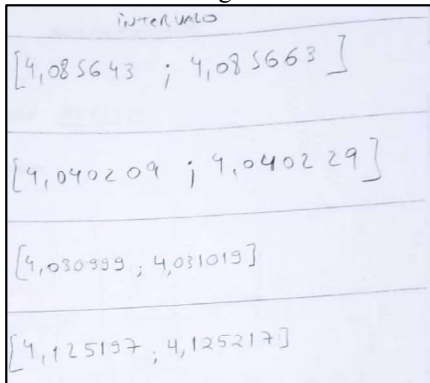 INTERVALO
[4,085643 ; 4,085663]
[4,040209 ; 4,040229]
[4,030999 ; 4,031019]
[4,125197 ; 4,125217]